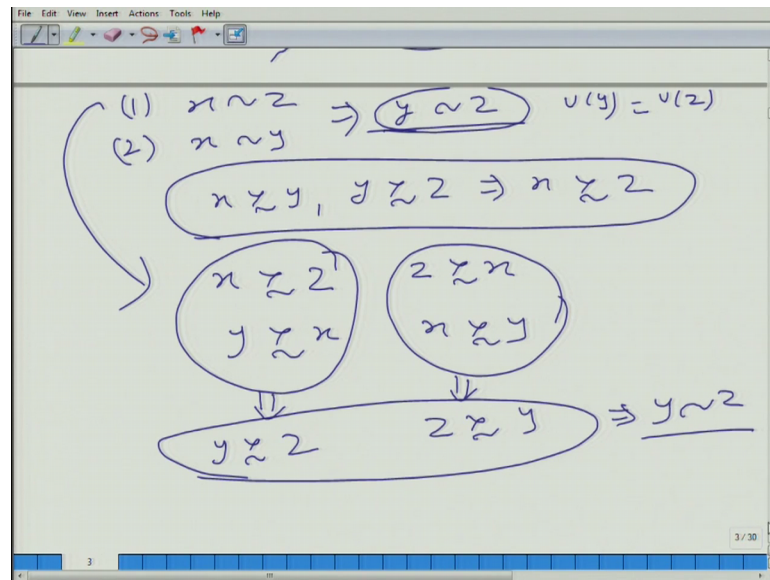 File Edit View Insert Actions Tools Help
(1) x ~ z ⇒ y ~ z u(y) = u(z)
(2) x ~ y
x ≿ y, y ≿ z ⇒ x ≿ z
x ≿ z z ≿ x
y ≿ x x ≿ y
⇓ ⇓
y ≿ z z ≿ y ⇒ y ~ z
3 / 30
3